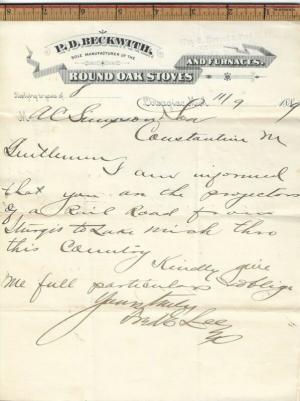 P. D. BECKWITH,
SOLE MANUFACTURER OF THE
ROUND OAK STOVES
AND FURNACES.
Dowagiac, 11/9
A C Simpson
Constantine M
Gentlemen
I am informed
that you are the projectors
of a Rail Road from
Sturgis to Lake Mich thro
this Country
Kindly give
me full particulars & oblige
Yours truly
Fred E Lee